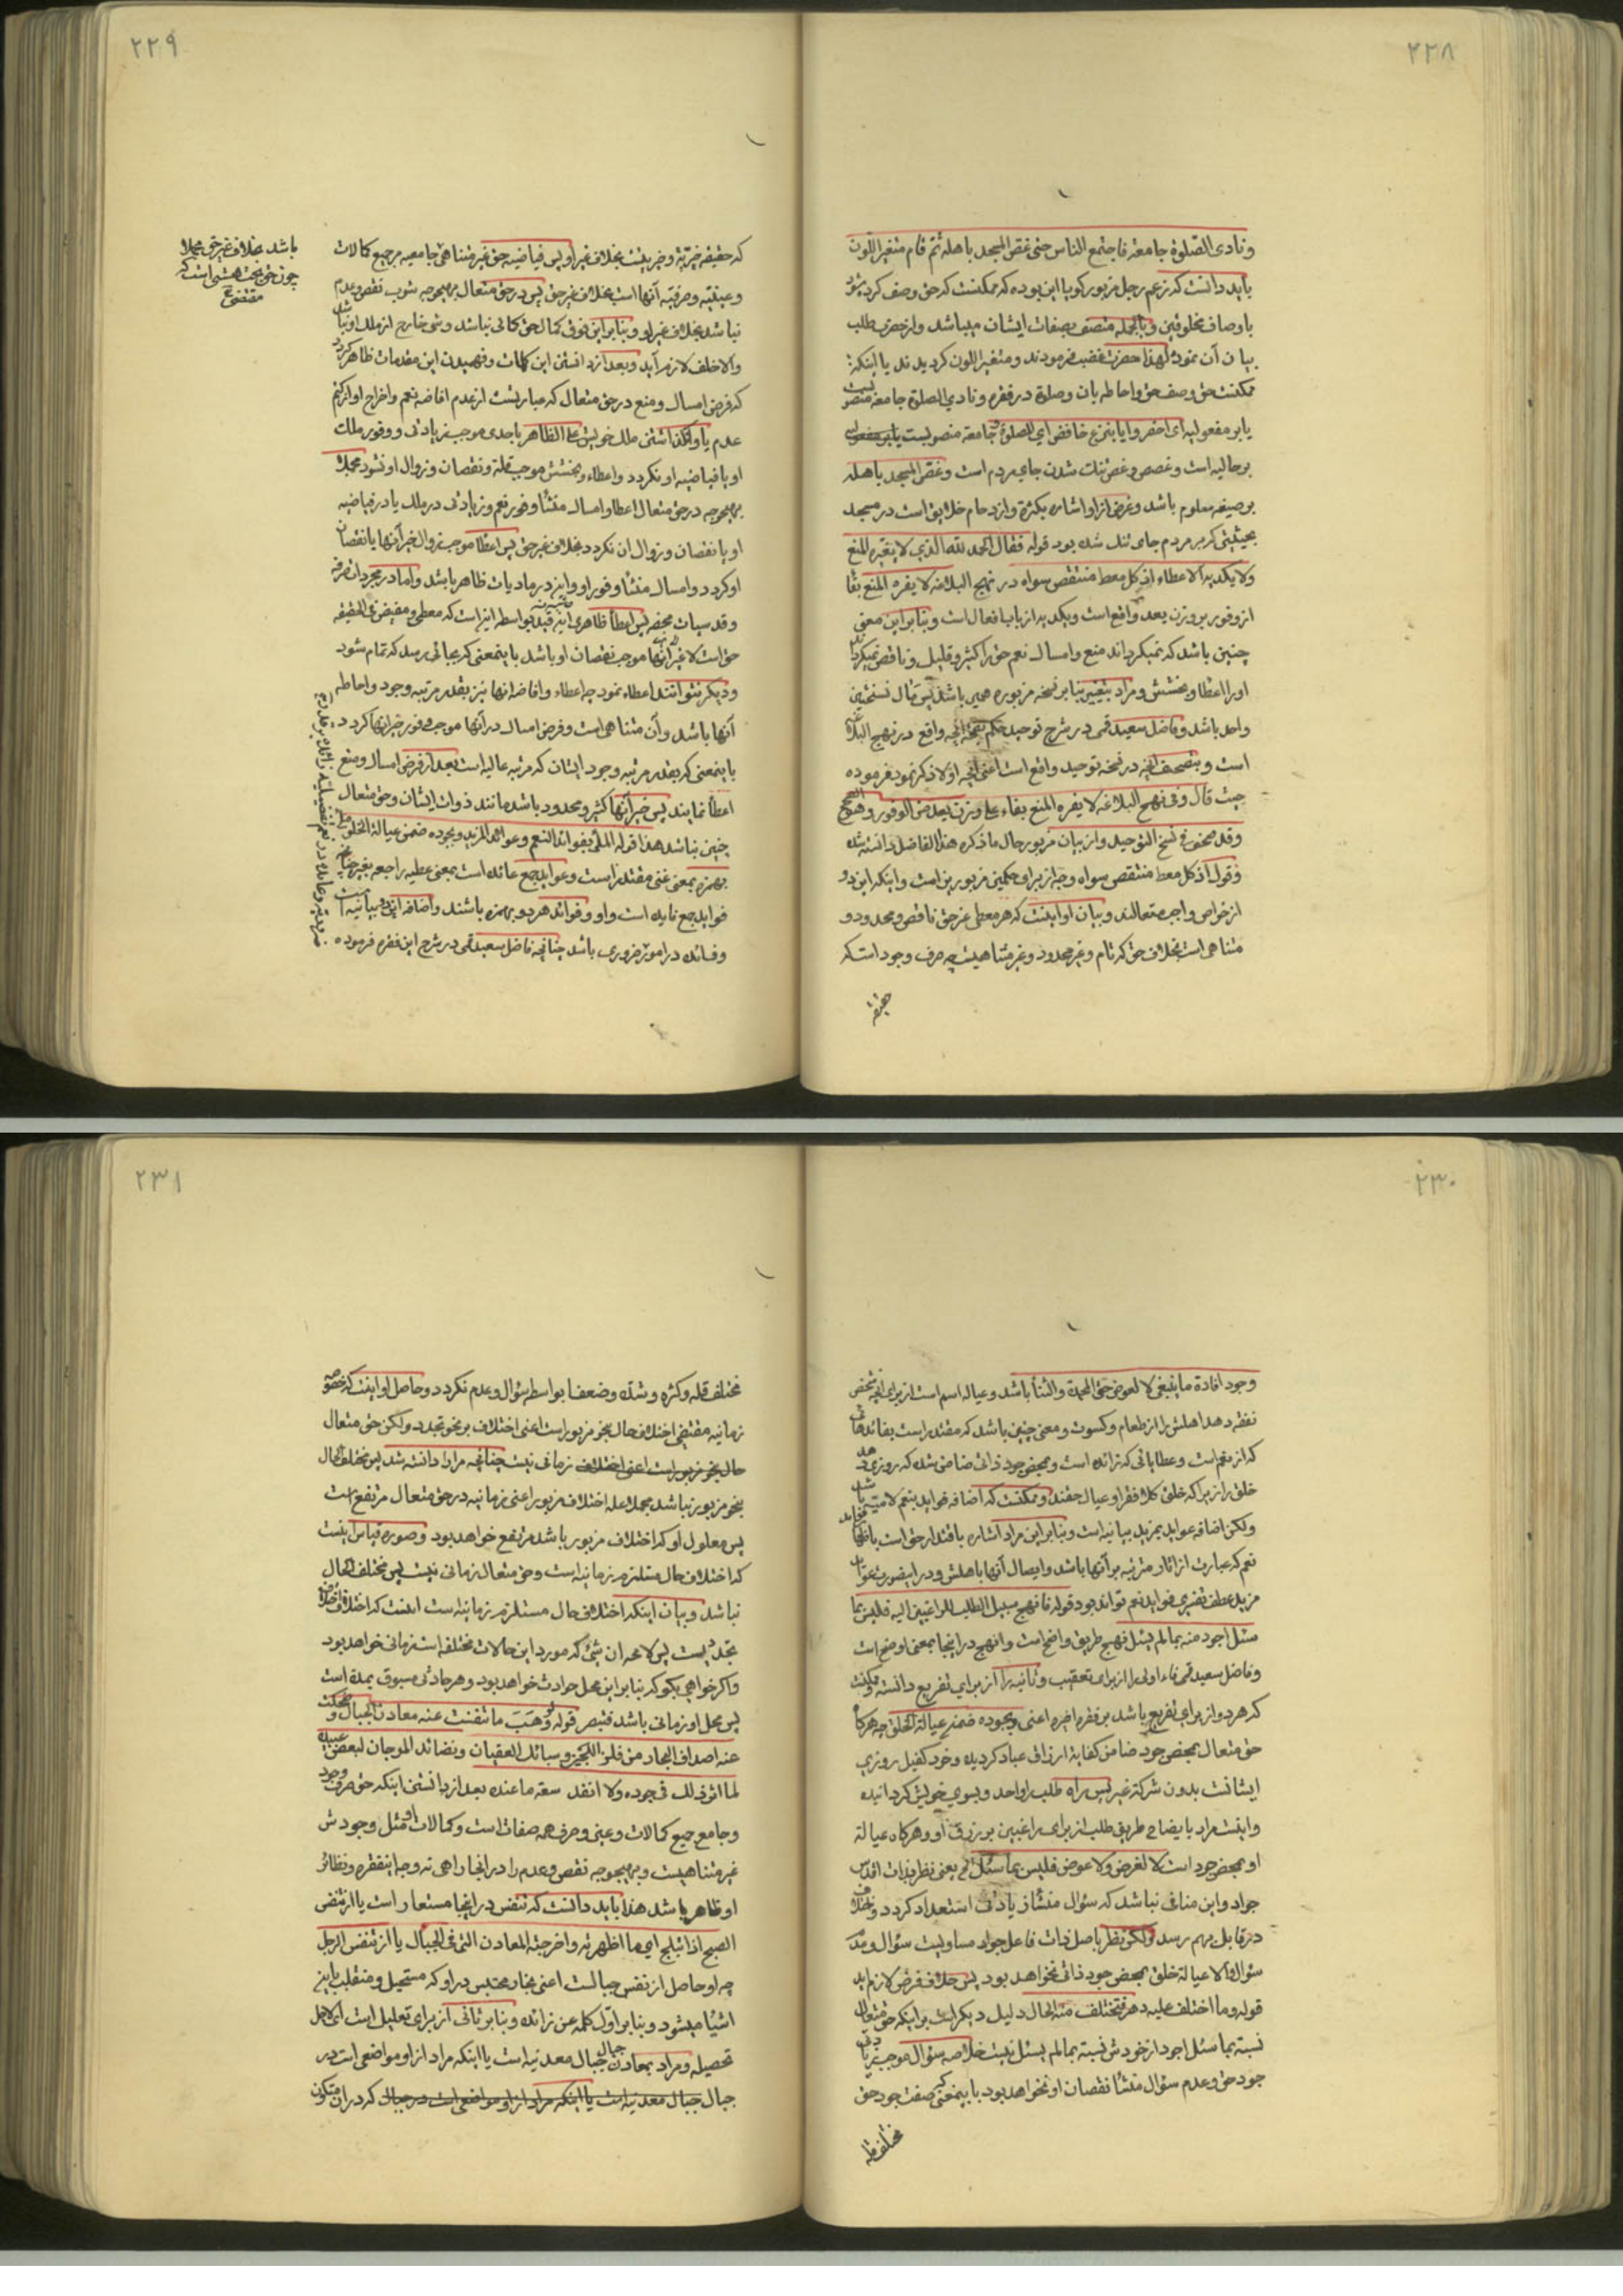 ٢٢٨
ونادی الصلوة جامعة فاجتمع الناس حتی غص المسجد باهله ثم قام متغیر اللون
باید دانست که زعم رجل مزبور کویا این بوده که ممکنست که حق وصف کرده شود
باوصاف مخلوقین وبالجمله متصف بصفات ایشان میباشد واز حضرت طلب
بیان آن نمود لهذا حضرت غضب فرمودند ومتغیر اللون کردیدند یا اینکه
ممکنست حق وصف حق واحاطه بان وصلوة در فقره ونادی الصلوة جامعة منصو بست
یا بر مفعولیه ای احضروا یا بنزع خافض ای للصلوة جامعة منصوبست
بر حالیه است وغصص وغص تنک شدن جای بمردم است وغص المسجد باهله
بر صیغه معلوم باشد وغرض از او اشاره بکثرة وازدحام خلایق است در مسجد
بحیثیتی که بر مردم جای تنک شده بود قوله فقال الحمد لله الذی لا یفره المنع
ولا یکدیه الاعطاء اذ کل معط منتقص سواه در نهج البلاغه لا یفره المنع بفا
از وفور بر وزن یعد واقع است ویکدیه از باب افعال است وبنابراین معنی
چنین باشد که نمیکرداند منع وامساک نعم حق را کثیر وقلیل وناقص نمیکرداند
اورا اعطا وبخشش ومراد بتغییر بنابر نسخه مزبوره همین باشد پس مآل نسختین
واحد باشد وفاضل سعید قمی در شرح توحید حکم بصحة آنچه واقع در نهج البلاغه
است وبتصحیف آنچه در نسخه توحید واقع است اعنی آنچه اولا ذکر نمود فرموده
حیث قال وفی نهج البلاغه لا یفره المنع بفاء علی وزن یعد من الوفور وهو الصحیح
وقد صحف فی نسخ التوحید واز بیان مزبور حال ما ذکره هذا الفاضل دانسته شد
وقوله اذ کل معط منتقص سواه وجه از برای حکمین مزبورین است واینکه این دو
از خواص واجب متعالند وبیان او اینست که هر معطی غیر حق ناقص ومحدود و
متناهی است بخلاف حق که تام وغیر محدود وغیر متناهیست چه صرف وجود است که
حقیقة
٢٢٩
که حقیقه خیریة وخیریتست بخلاف غیر او پس فیاضیه حق غیر متناهی جامعیه بر جمیع کمالات
وعینیة وصرفیة آنها است بخلاف غیر حق پس در حق متعال بهیچوجه شوب نقص وعدم
نباشد بخلاف غیر او وبنابراین فوق کمال حق کمالی نباشد وشئ خارج از ملک او نباشد
والا خلف لازم آید وبعد از دانستن این کلمات وفهمیدن این مقدمات ظاهر کردد
که فرض امساک ومنع در حق متعال که عبارتست از عدم افاضه نعم واخراج او از کتم
عدم یا واکذاشتن ملک خویش علی الظاهر باحدی موجب زیادتی ووفور ملک
او یا فیاضیه او نکردد واعطاء وبخشش موجب قلة ونقصان وزوال او نشود مجملا
بهیچوجه در حق متعال اعطا وامساک منشأ وفور نعم وزیادتی در ملک یا در فیاضیه
او یا نقصان وزوال ان نکردد بخلاف غیر حق پس اعطا موجب زوال خیر آنها یا نقصان
او کردد وامساک منشأ وفور او واین در مادیات ظاهر باشد واما در مجردات صرفه
وقدسیات محضه پس اعطأ ظاهری این قید بواسطه اینست که معطی ومفیض فی الحقیقه
حق است لا غیر آنها موجب نقصان او باشد باینمعنی که بجائی رسد که تمام شود
ودیکر نتوانند اعطاء نمود چه اعطاء وافاضه انها نیز بقدر مرتبه وجود واحاطه
آنها باشد وآن متناهی است وفرض امساک در آنها موجب وفور خیر انها کردد
باینمعنی که بقدر مرتبه وجود ایشان که مرتبه عالیه است بعد از فرض امساک ومنع
اعطأ نمایند پس خیر آنها کثیر ومحدود باشد مانند ذوات ایشان وحق متعال
چنین نباشد هذا قوله الملئ بفوائد النعم وعوائد المزید وبجوده ضمن عیالة الخلق ملی
بهمزه بمعنی غنی مقتدر است وعواید جمع عائده است بمعنی عطیه راجعه بغیر چنانچه
فواید جمع فایده است واو وفوائد هر دو بهمزه باشند واضافه این دو بیانیه است
وفائده در امور ضروری باشد چنانچه فاضل سعید قمی در شرح این فقره فرموده
باشد بخلاف غیر حق مجملا
چون حق بحت هستی است که
مقتضی
٢٣٠
وجود افادة ما ینبغی لا لعوض حتی المحمدة والثنأ باشد وعیاله اسم است از برای آنچه شخص
نفقه دهد اهلش را از طعام وکسوت ومعنی چنین باشد که مقتدر است بفائدهائی
که از نعم است وعطایائی که زائده است وبمحض جود ذاتی ضامن شده که روزی دهد
خلق را زیرا که خلق کلا فقرا وعیال حقند وممکنست که اضافه فواید بنعم لامیه باشد
ولکن اضافه عواید بمزید بیانیه است وبنابراین مراد اشاره باقتدار حق است بافاضه
نعم که عبارت از اثار مترتبه بر آنها باشد وایصال آنها باهلش ودر اینصورت عواید
مزید عطف تفسیری فواید نعم تواند بود قوله فانهج سبیل الطلب للراغبین الیه فلیس بما
سئل اجود منه بما لم یسئل نهج طریق واضح است وانهج در اینجا بمعنی اوضح است
وفاضل سعید قمی فاء اولی را از برای تعقیب وثانیه را از برای تفریع دانسته وممکنست
که هر دو از برای تفریع باشد بر فقره اخیره اعنی وبجوده ضمن عیالة الخلق چه هرکاه
حق متعال بمحض جود ضامن کفایة ارزاق عباد کردیده وخود کفیل روزی
ایشانست بدون شرکة غیر پس راه طلب را واحد وبسوی خویش کردانیده
واینست مراد بایضاح طریق طلب از برای راغبین بر رزق او وهرکاه عیالة
او بمحض جود است لا لغرض ولا عوض فلیس بما سئل الخ یعنی نظر بذات اقدس
جواد واین منافی نباشد که سؤال منشأ زیادتی استعداد کردد وخلاف
در قابل بهم رسد ولکن نظر باصل ذات فاعل جواد مساویست سؤال وعدم
سؤال والا عیالة خلق بمحض جود ذاتی نخواهد بود پس خلاف فرض لازم آید
قوله وما اختلف علیه دهر فتختلف منه الحال دلیل دیکر است بر اینکه حق متعال
نسبة بما سئل اجود از خودش نسبة بما لم یسئل نیست خلاصه سؤال موجب زیادتی
جود حق وعدم سؤال منشأ نقصان او نخواهد بود باینمعنی که صفت جود حق
مختلف قلة
٢٣١
مختلف قلة وکثرة وشدة وضعفا بواسطه سؤال وعدم نکردد وحاصل او اینست که خصوصیه
زمانیه مقتضی اختلاف حال بنحو مزبور است اعنی اختلاف بر نحو تجدد ولکن حق متعال
زمانی نیست چنانچه مرارا دانسته شد پس مختلف الحال
بنحو مزبور نباشد مجملا علة اختلاف مزبور اعنی زمانیه در حق متعال مرتفع است
پس معلول او که اختلاف مزبور باشد مرتفع خواهد بود وصورة قیاس اینست
که اختلاف حال مستلزم زمانیه است وحق متعال زمانی نیست پس مختلف الحال
نباشد وبیان اینکه اختلاف حال مستلزم زمانیه است اینست که اختلاف
تجدد نیست پس لا محه ان شئ که مورد این حالات مختلفه است زمانی خواهد بود
واکر خواهی بکو که بنابراین محل حوادث خواهد بود وهر حادثی مسبوق بمدة است
پس محل او زمانی باشد فتبصر قوله ولو وهب ما تنفست عنه معادن الجبال وضحکت
عنه اصداف البحار من فلز اللجین وسبائک العقیان ونضائد المرجان لبعض عبیده
لما اثر ذلک فی جوده ولا انفد سعة ما عنده بعد از دانستن اینکه حق صرف وجود
وجامع جمیع کمالات وعین وصرف همه صفات است وکمالات او مثل وجودش
غیر متناهیست وبهیچوجه نقص وعدم را در انجا راهی نه وجه اینفقره ونظائر
او ظاهر باشد هذا باید دانست که تنفس در اینجا مستعار است یا از تنفس
الصبح اذا انبلج ای ما اظهرته واخرجته المعادن التی فی الجبال یا از تنفس الرجل
چه او حاصل از نفس جبالست اعنی بخار محتبس در او که مستحیل ومنقلب باین
اشیأ میشود وبنابر اول کلمه عن زائده وبنابر ثانی از برای تعلیل است ای لاجل
تحصیله ومراد بمعادن جبال جبال معدنیه است یا اینکه مراد از او مواضعی است در
جبال که در ان متکون